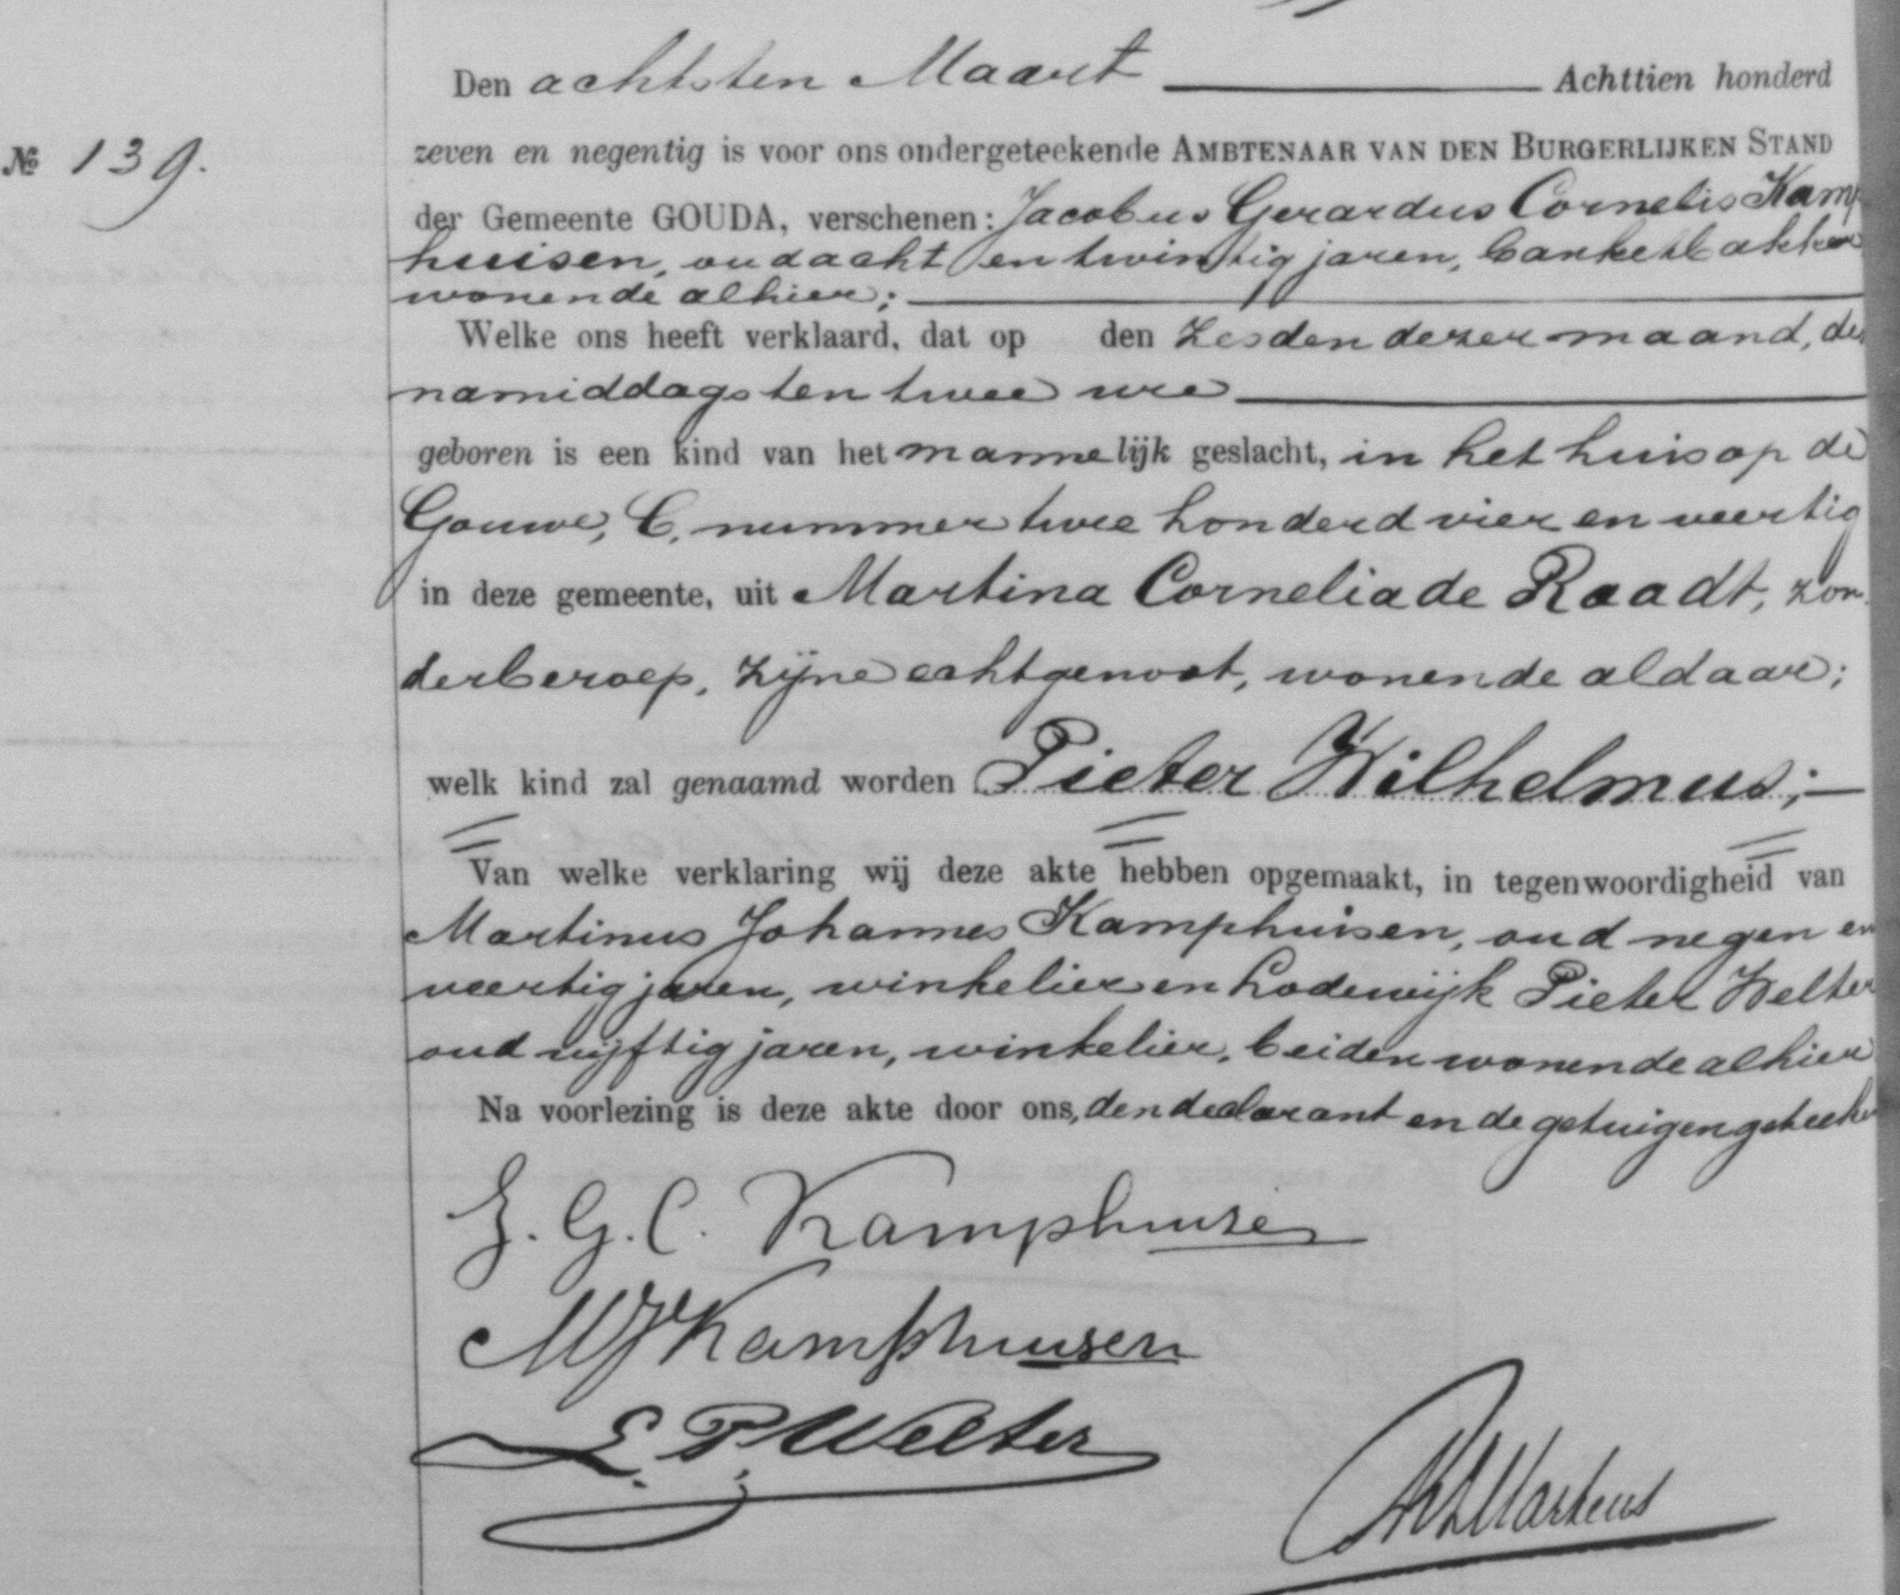 Den achtsten Maart Achttien honderd
№ 139.
zeven en negentig is voor ons ondergeteekende AMBTENAAR VAN DEN BURGERLIJKEN STAND
der Gemeente GOUDA, verschenen: Jacobus Gerardus Cornelis Kamp
huisen, oud acht en twintig jaren, banketbakker
wonende alhier;
Welke ons heeft verklaard, dat op den zesden dezer maand, des
namiddags ten twee ure
geboren is een kind van het mannelijk geslacht, in het huis op de
Gouwe, C, nummer twee honderd vier en veertig
in deze gemeente, uit Martina Cornelia de Raadt, zon
der beroep, zijne echtgenoot, wonende aldaar;
welk kind zal genaamd worden Pieter Wilhelmus;
Van welke verklaring wij deze akte hebben opgemaakt, in tegenwoordigheid van
Martinus Johannes Kamphuisen, oud negen en
veertig jaren, winkelier en Lodewijk Pieter Welter
oud vijftig jaren, winkelier, beiden wonende alhier
Na voorlezing is deze akte door ons, den declarant en de getuigen geteeke
J. G. C. Kamphuisen
MJ Kamphuisen
L. P. Welter
Martens